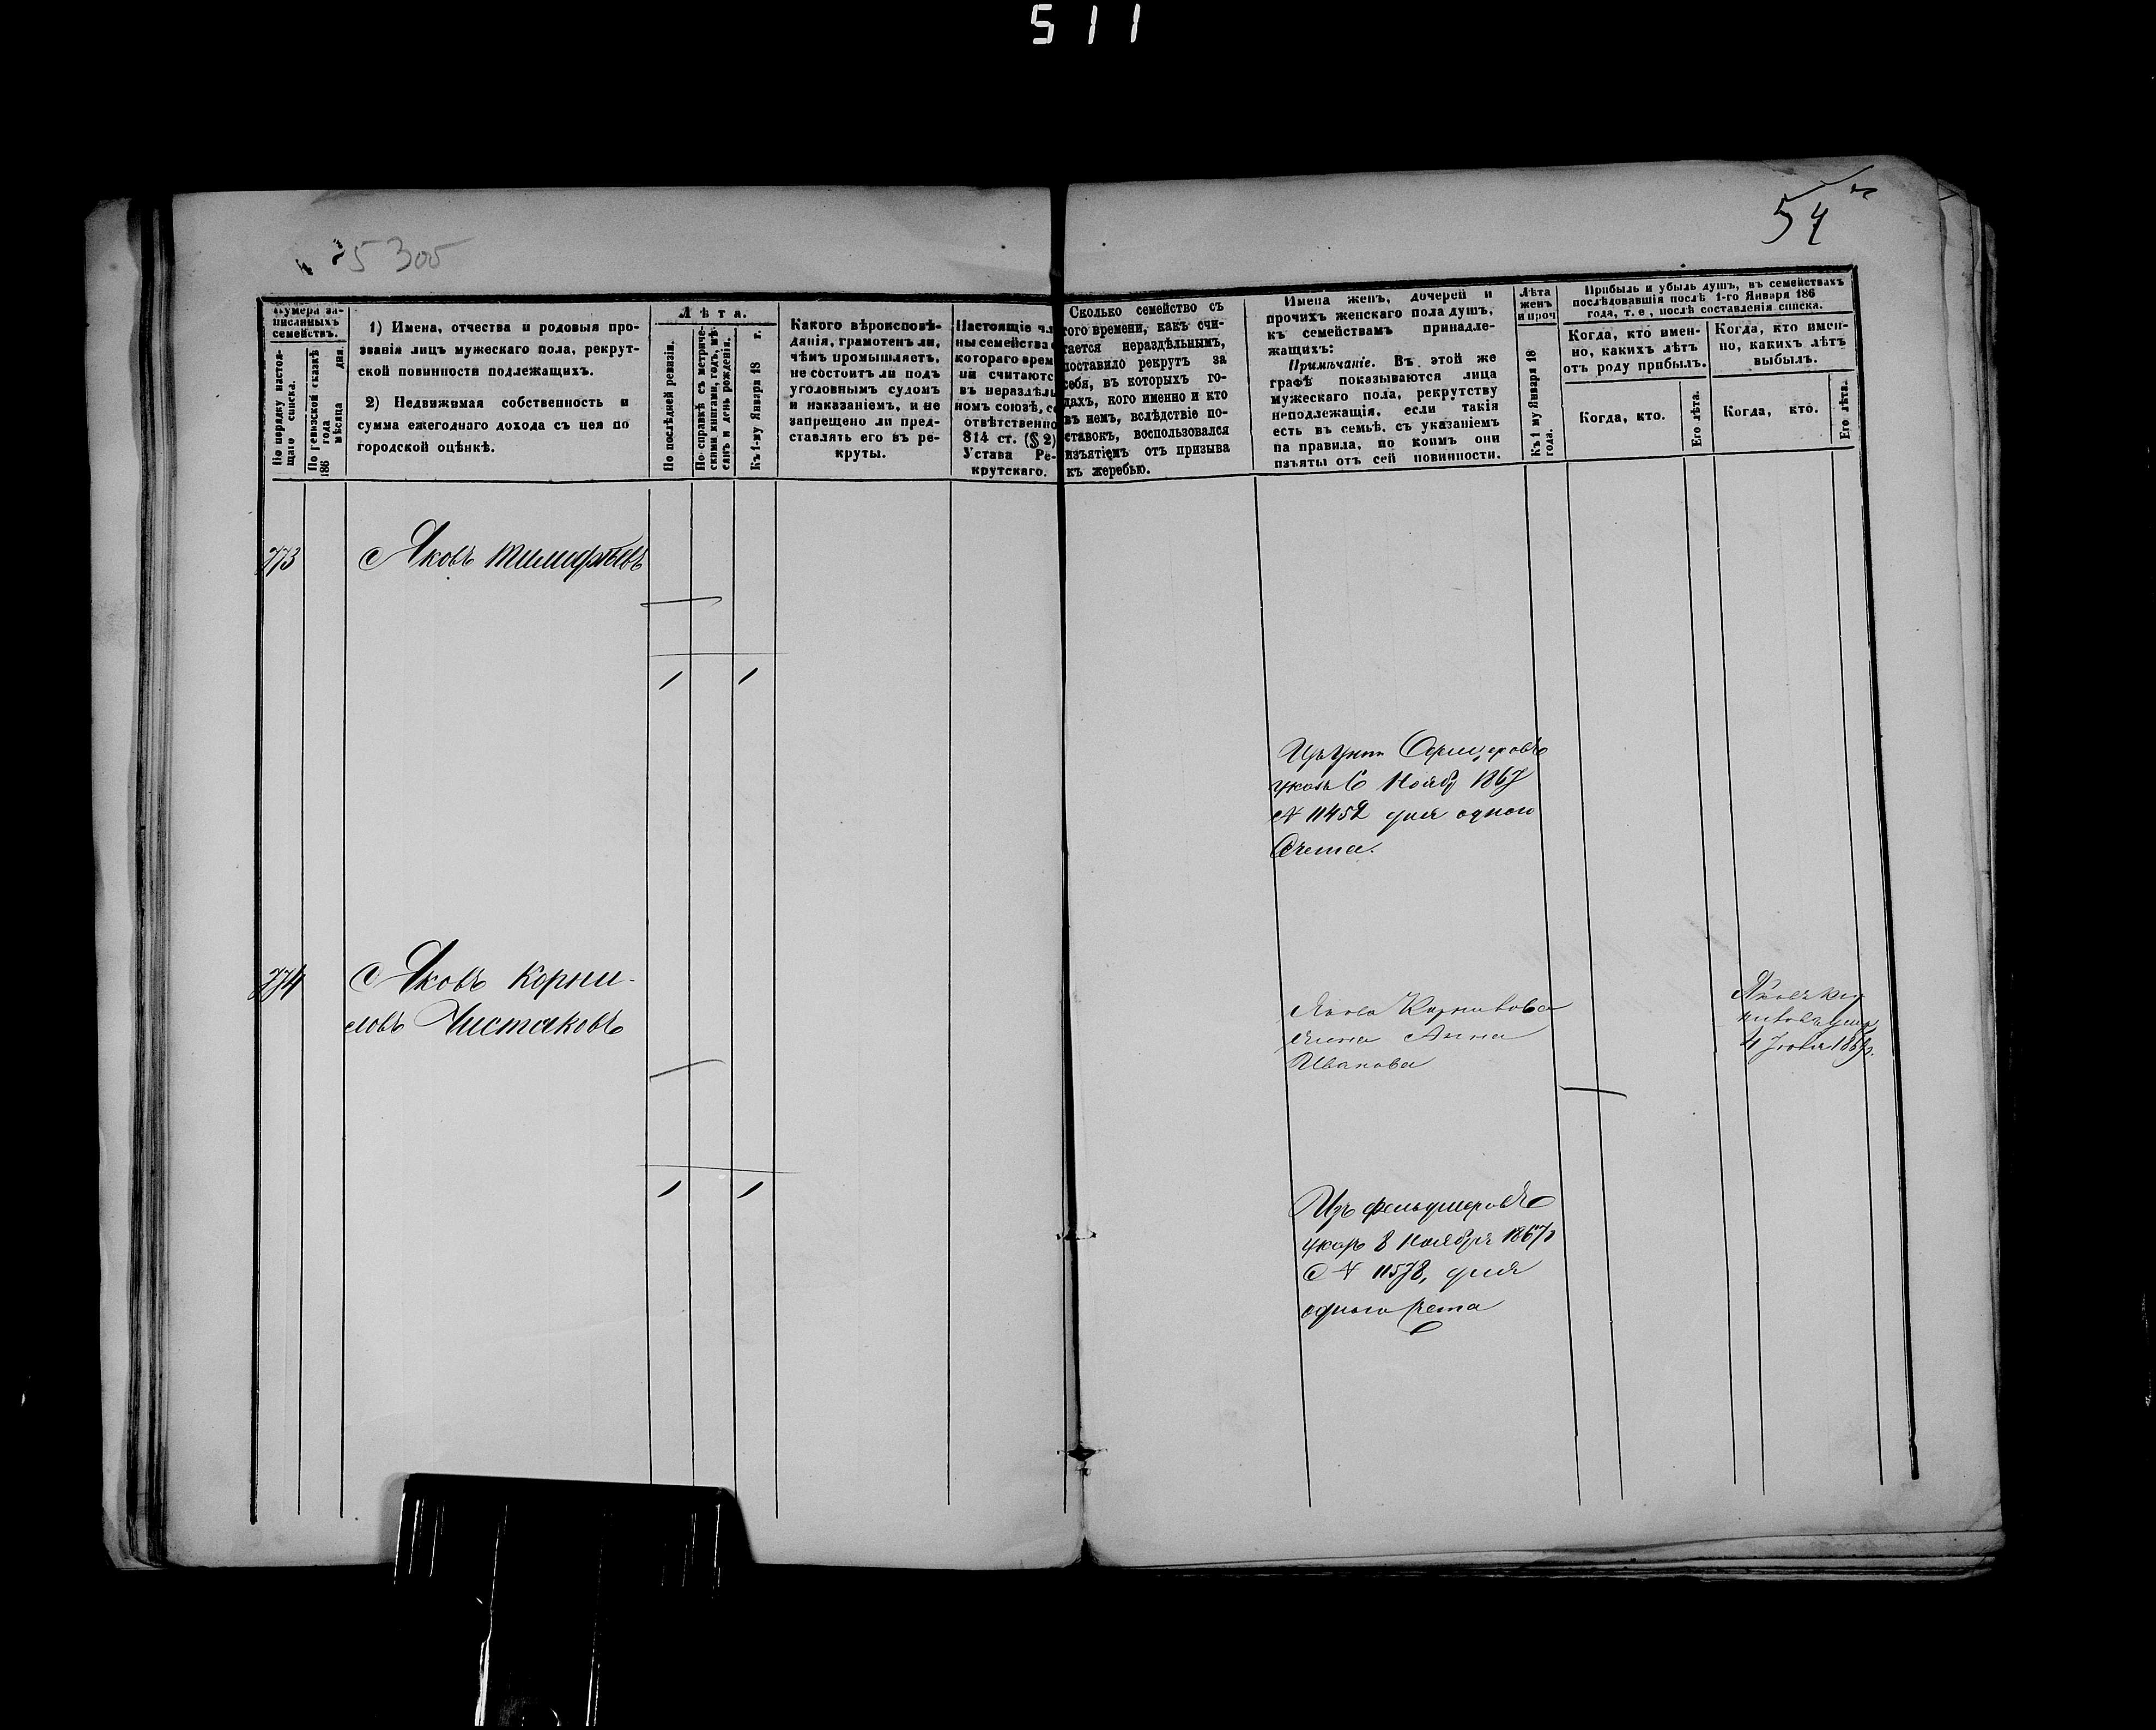 511
54
5 300
Нумера за-
писанныхъ
семействъ.
По порядку настоя-
щаго списка.
По ревизской сказкѣ
186 года
мѣсяца дня.
1) Имена, отчества и родовыя про-
званія лицъ мужескаго пола, рекрут-
ской повинности подлежащихъ.
2) Недвижимая собственность и
сумма ежегоднаго дохода съ нея по
городской оцѣнкѣ.
Лѣта.
По послѣдней ревизіи.
По справкѣ съ метриче-
скими книгами, годъ, мѣ-
сяцъ и день рожденія.
Къ 1-му Января 18 г.
Какого вѣроисповѣ-
данія, грамотенъ ли,
чѣмъ промышляетъ,
не состоитъ ли подъ
уголовнымъ судомъ
и наказаніемъ, и не
запрещено ли пред-
ставлять его въ ре-
круты.
Настоящіе чл
ны семейства с
котораго врем
ни считаютс
въ нераздѣль
номъ союзѣ, со
отвѣтственно
814 ст. (§ 2)
Устава Ре-
крутскаго.
Сколько семейство съ
того времени, какъ счи-
тается нераздѣльнымъ,
поставило рекрутъ за
себя, въ которыхъ го-
дахъ, кого именно и кто
въ немъ, вслѣдствіе по-
ставокъ, воспользовался
изъятіемъ отъ призыва
къ жеребью.
Имена женъ, дочерей и
прочихъ женскаго пола душъ,
къ семействамъ принадле-
жащихъ:
Примѣчаніе. Въ этой же
графѣ показываются лица
мужескаго пола, рекрутству
неподлежащія, если такія
есть въ семьѣ, съ указаніемъ
на правила, по коимъ они
изъяты отъ сей повинности.
Лѣта
женъ
и проч
Къ 1 му Января 18
года.
Прибыль и убыль душъ, въ семействахъ
послѣдовавшія послѣ 1-го Января 186
года, т. е, послѣ составленія списка.
Когда, кто имен-
но, какихъ лѣтъ
отъ роду прибылъ.
Когда, кто имен-
но, какихъ лѣтъ
выбылъ.
Когда, кто.
Его лѣта.
Когда, кто.
Его лѣта.
773
Яковъ Тимофѣевъ
1 1
Изъ Унт. Офицеровъ
указъ 6 Нояб. 1867
№ 11452 для одного
Счета.
774
Яковъ Корни-
ловъ Чистяковъ
1 1
Якова Корнилова
жена Анна
Иванова
Яковъ Кор
ниловъ умр
4 1867г.
Изъ фельдшеровъ
указъ 8 Ноября 1867г
№ 11578, для
одного счета